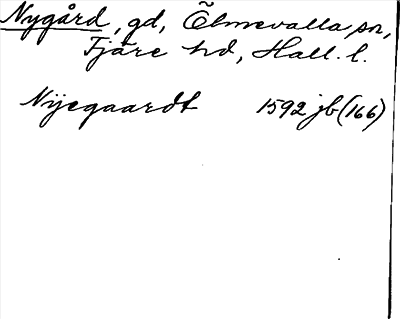 Nygård, gd, Ölmevalla sn,
Fjäre hd, Hall. l.
Nijegaardt 1592 jb (166)